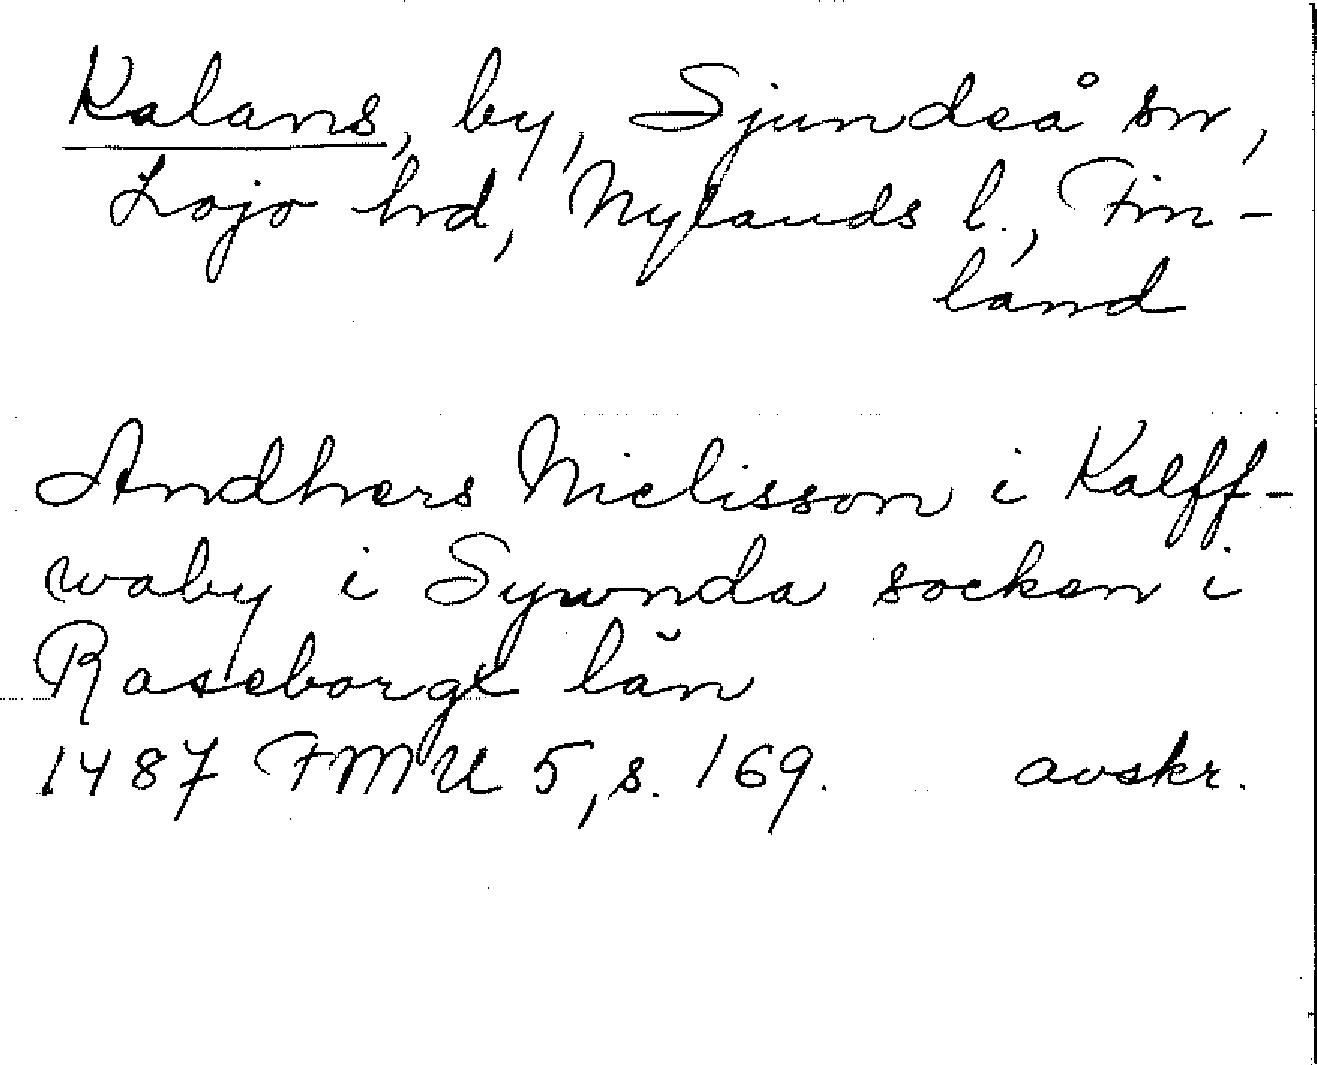 Kalans, by, Sjundeå sn,
Lojo hrd, Nylands l., Fin-
land
Andhers Nielisson i Kalff-
waby i Sywnda socken i
Raseborgx län
1487 FMU 5, s. 169. avskr.